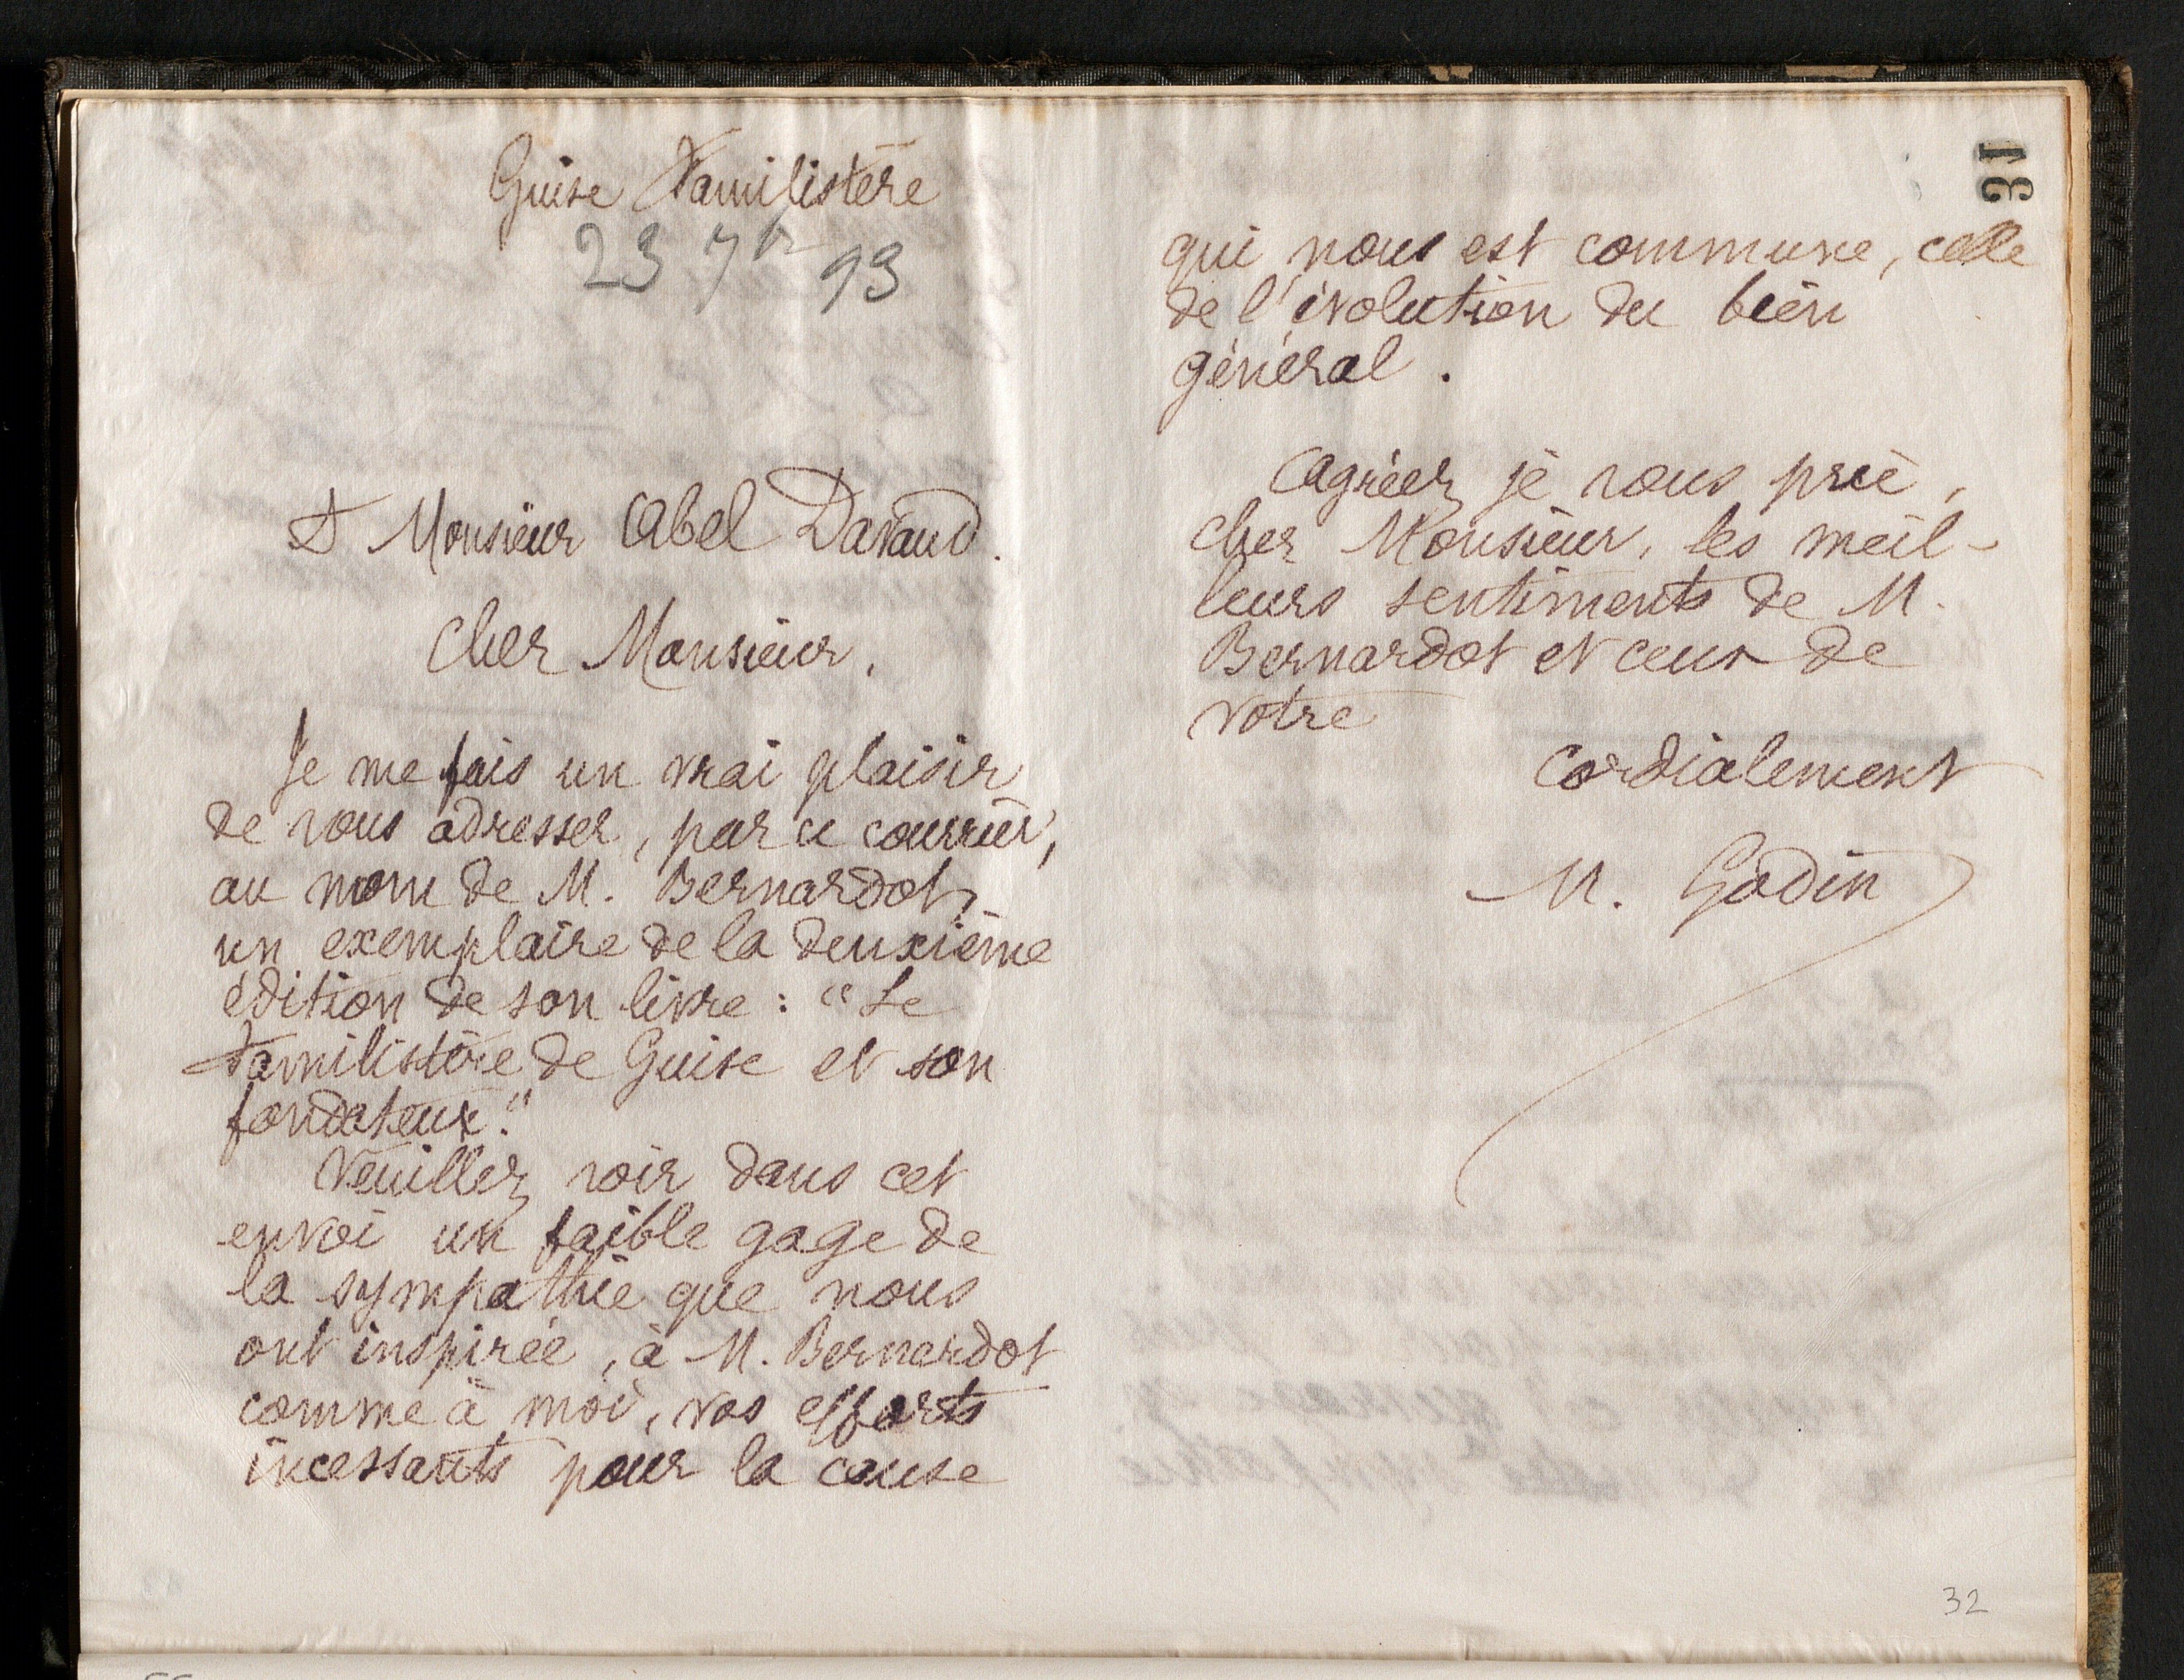 Guise Familistère
23 7br 93
A Monsieur Abel Davaud.
Cher Monsieur,
Je me fais un vrai plaisir
de vous adresser, par ce courrier,
au nom de M. Bernardot,
un exemplaire de la deuxième
édition de son livre : "Le
Familistère de Guise et son
fondateur."
Veuillez voir dans cet
envoi un faible gage de
la sympathie que nous
ont inspirée, à M. Bernardot
comme à moi, vos efforts
incessants pour la cause
31
qui nous est commune, celle
de l'évolution du bien
général.
Agréez je vous prie,
cher Monsieur, les meil-
leurs sentiments de M.
Bernardot et ceux de
votre
cordialement
M. Godin
32